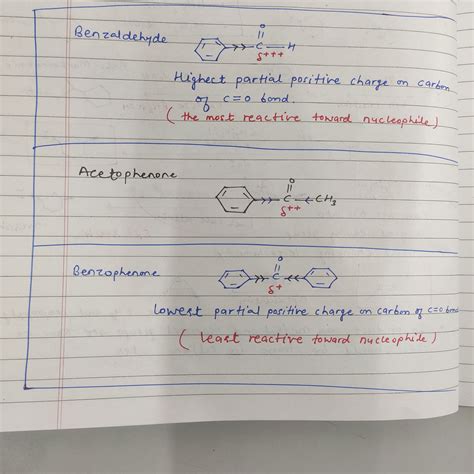 Benzaldehyde
O
||
C — H
δ+++
Highest partial positive charge on carbon
of c=0 bond.
( the most reactive toward nucleophile)
Acetophenone
O
||
C CH3
δ++
Benzophenone
O
||
C
δ+
lowest partial positive charge on carbon of c=0 bond
( least reactive toward nucleophile )